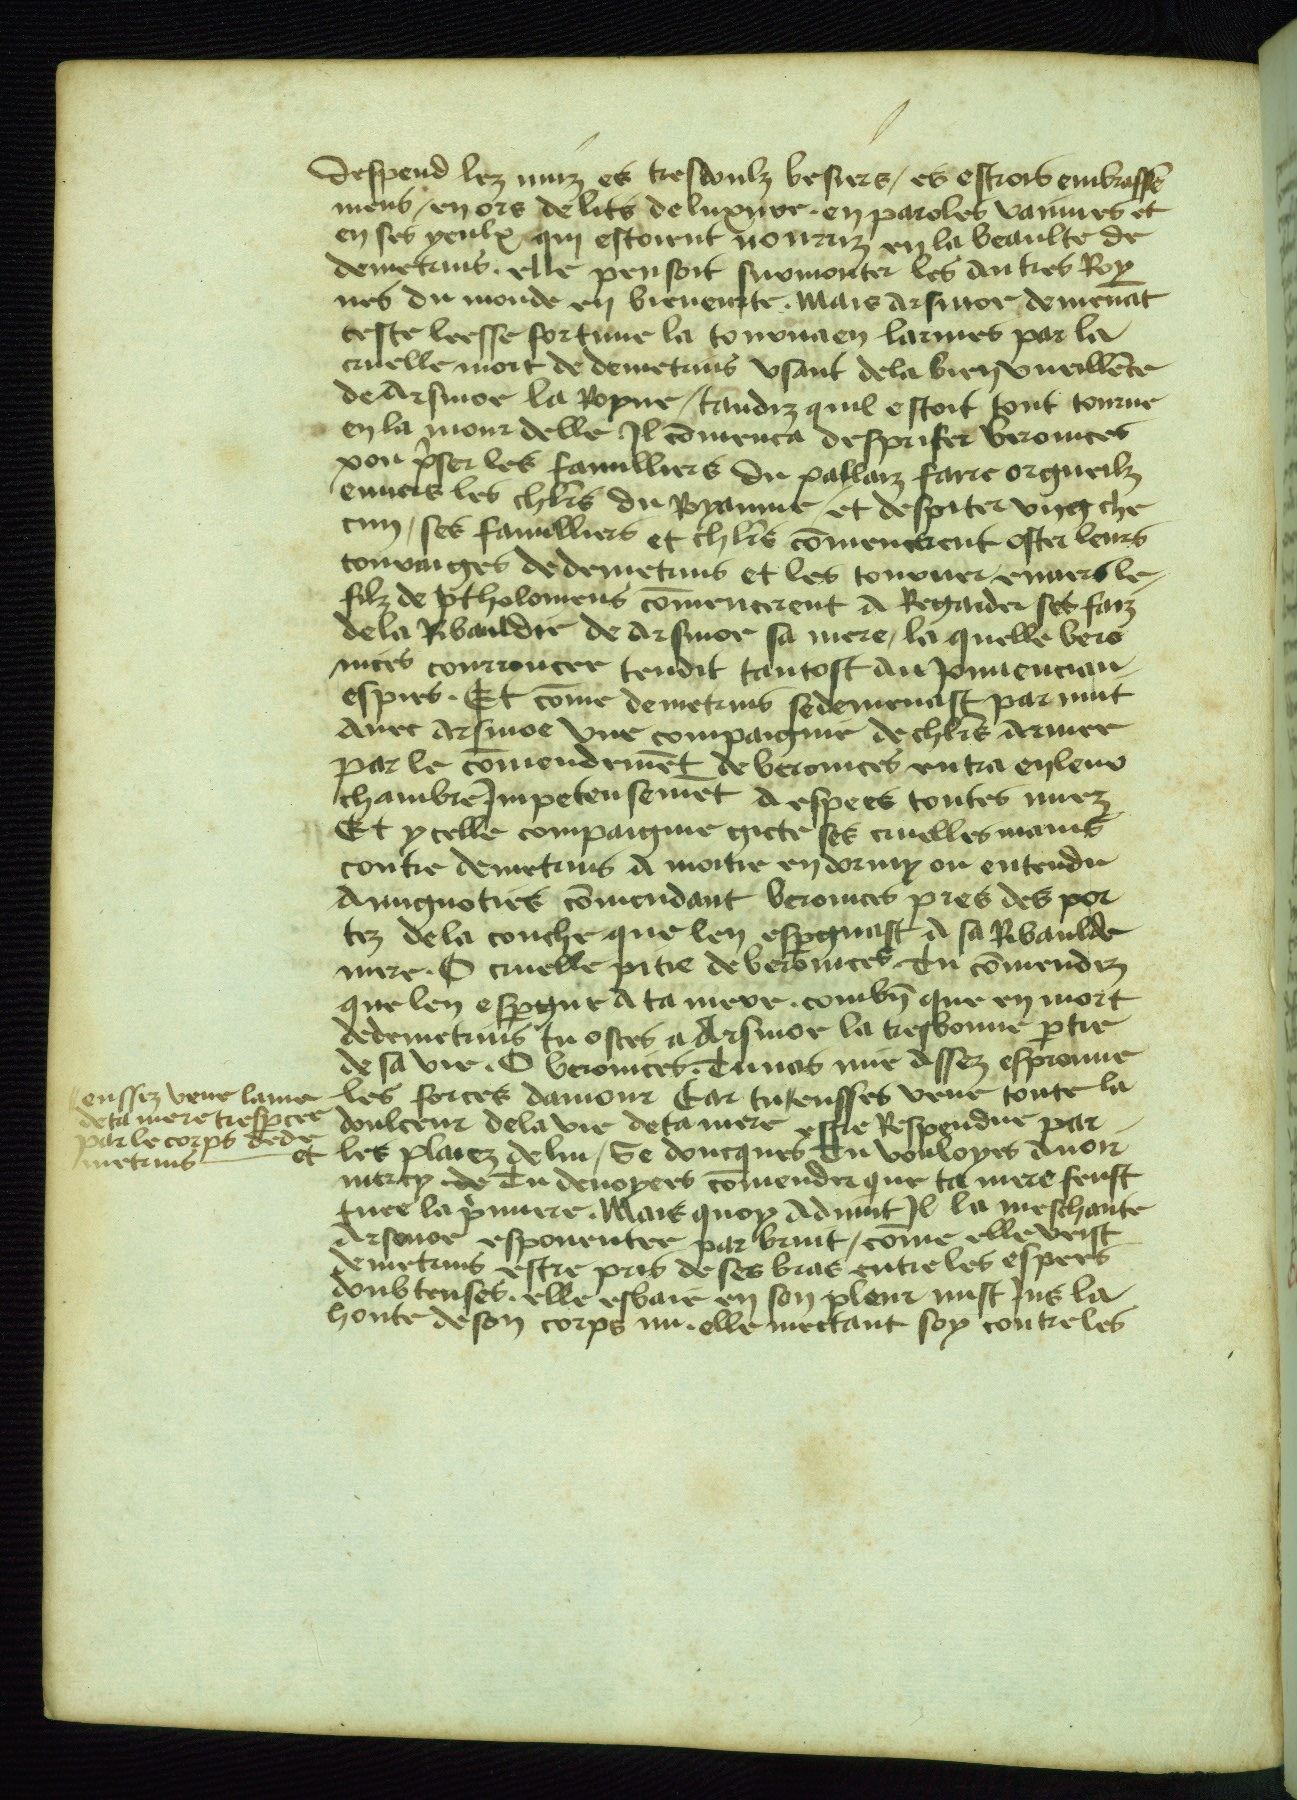 despend lez nuiz es tresdoulz besiers / es estrois embrassē
mens / en ors delits de luxure . en paroles vainnes et
en ses yeulx qui estoient nourriz en la beaulte de
demetrius . elle pensoit surmonter les autres Roy
nes du monde en bieneurte . Mais arsinoe demenāt
ceste leesse fortune la tourna en larmes par la
cruelle mort de demetrius vsant dela bien vueillēce
de Arsinoe la Royne / tandiz quil estoit tout tourne
en la mour delle Il cōmenca desprisier beronices
non p̄ser les familliers du pallaiz faire orgueilz
enuers les chl̄rs du Royaume / et despiter vng che
cun / ses familliers et chl̄rs cōmencerent oster leurs
couraiges de demetrius et les tourner enuers le
filz de ptholomeus cōmencerent a Regarder ses faiz
dela Ribauldie de arsinoe sa mere / la quelle bero
nices courroucee tendit tantost au Jouuenciau
espies . Et cōme demetrius sedemenast par nuit
auec arsinoe vne compaignie de chl̄rs armee
par le cōmendemēt de beronices entra en leur
chambre Impetueusemēt a espees toutes nuez
Et ycelle compaignie gicte ses cruelles mains
contre demetrius a moitie endormy ou entendu
a mignoties cōmendant beronices pres des por
tez dela couche que len esp̄gnast a sa Ribaulde
mere . O cruelle pitie de beronices Tu cōmendez
que len esp̄gne a ta mere . combn̄ que en mort
dedemetrius tu ostes a Arsinoe la tresbonne p̄tie
de sa vie . O beronices . Tu nas mie assez esprouue
les forces damour Car tu eusses veue toute la
eussiez veue lame
deta mere tresp̄cee
par le corps de de
metrius et
doulceur dela vie deta mere estre Respendue par
les plaiez de lui / Se doncques Tu vouloyes auoir
mercy de Tu deuoyes cōmender que ta mere feust
tuee la p̄miere . Mais quoy aduint Il la meschante
Arsinoe espouentee par bruit / cōme elle veist
demetrius estre pris de ses bras entre les espees
doubteuses . elle esbaie en son pleur mist Jus la
honte de son corps nu . elle mectant soy contre les